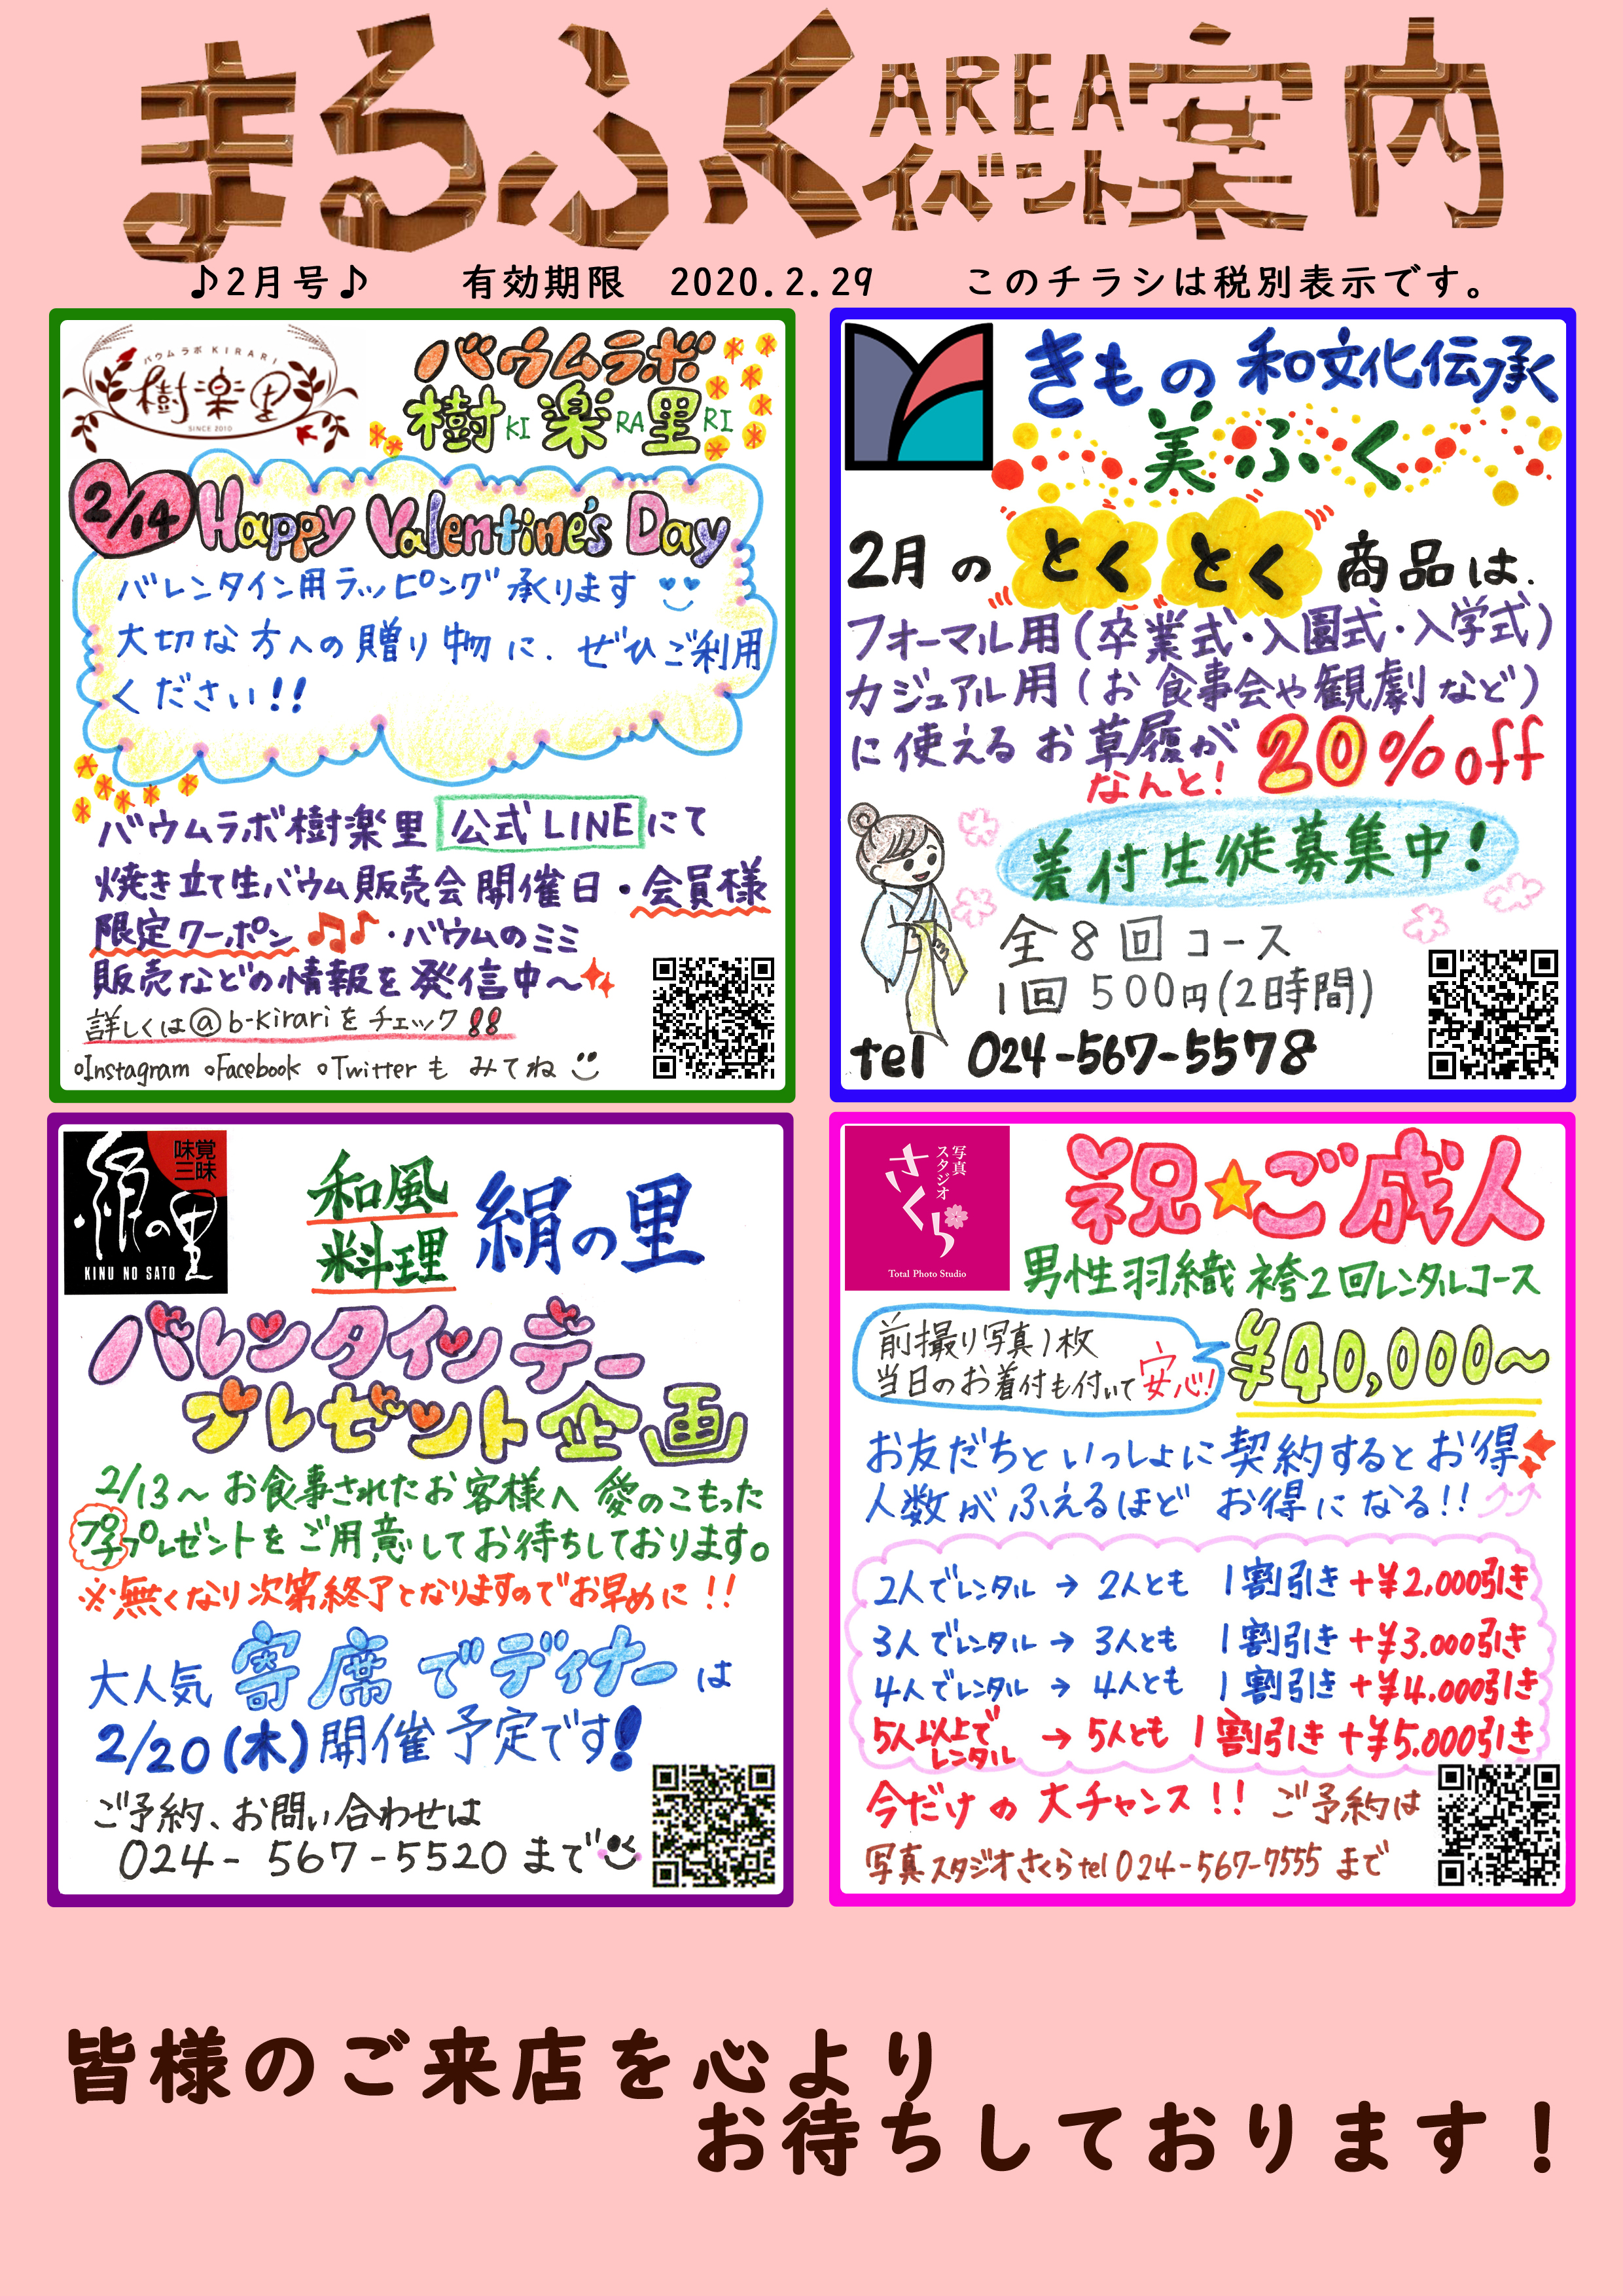 まるふくAREAイベント案内
♪2月号♪ 有効期限 2020.2.29 このチラシは税別表示です。
バウムラボ KIRARI
樹楽里
SINCE 2010
バウムラボ
樹KI楽RA里RI
2/14 Happy Valentine's Day
バレンタイン用ラッピング承ります
大切な方への贈り物に、ぜひご利用
ください!!
バウムラボ樹楽里 公式LINEにて
焼き立て生バウム販売会開催日・会員様
限定クーポン♫♪・バウムのミミ
販売などの情報を発信中〜
詳しくは@b-kirariをチェック!!
○Instagram ○Facebook ○Twitterも みてね
きもの 和文化伝承
美ふく
2月の とくとく 商品は、
フォーマル用(卒業式・入園式・入学式)
カジュアル用(お食事会や観劇など)
に使えるお草履が
なんと! 20%off
着付生徒募集中!
全8回コース
1回 500円(2時間)
tel 024-567-5578
味覚
三昧
絹の里
KINU NO SATO
和風
料理
絹の里
バレンタインデー
プレゼント企画
2/13〜お食事されたお客様へ 愛のこもった
プチプレゼントをご用意してお待ちしております。
※無くなり次第終了となりますのでお早めに!!
大人気 寄席でディナーは
2/20(木)開催予定です!
ご予約、お問い合わせは
024-567-5520まで
写真
スタジオ
さくら
Total Photo Studio
祝☆ご成人
男性羽織袴2回レンタルコース
前撮り写真1枚
当日のお着付も付いて安心!
¥40,000〜
お友だちといっしょに契約するとお得
人数がふえるほど お得になる!!
2人でレンタル → 2人とも 1割引き+¥2.000引き
3人でレンタル → 3人とも 1割引き+¥3.000引き
4人でレンタル → 4人とも 1割引き+¥4.000引き
5人以上でレンタル → 5人とも 1割引き+¥5.000引き
今だけの大チャンス!! ご予約は
写真スタジオさくらtel024-567-7555 まで
皆様のご来店を心より
お待ちしております！